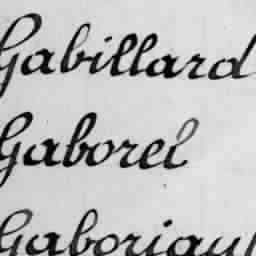 Gabillard
Gaborel
Gaboriau